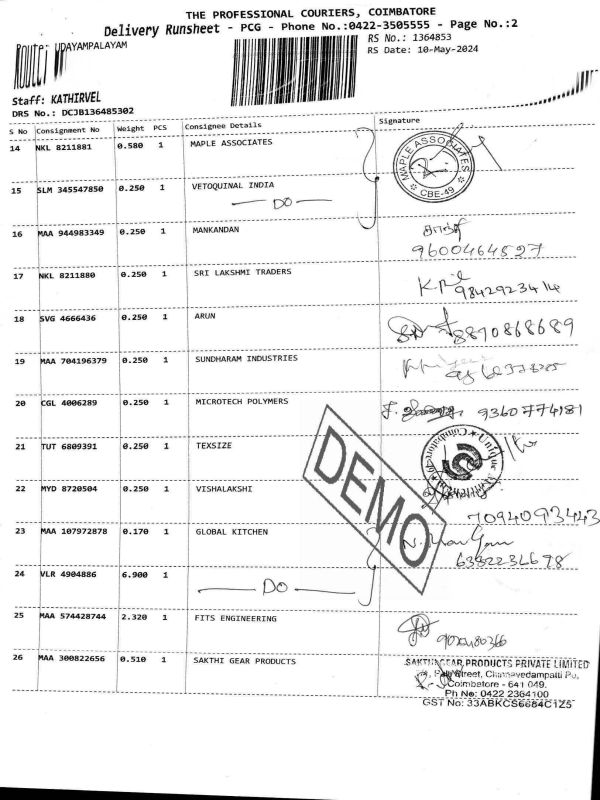 THE PROFESSIONAL COURIERS, COIMBATORE
Delivery Runsheet - PCG - Phone No.:0422-3505555 - Page No.:2
Route: UDAYAMPALAYAM
RS No.: 1364853
RS Date: 10-May-2024
Staff: KATHIRVEL
DRS No.: DCJB136485302
S No Consignment No Weight PCS Consignee Details Signature
14 NKL 8211881 0.580 1 MAPLE ASSOCIATES
MAPLE ASSOCIATES
CBE-49
15 SLM 345547850 0.250 1 VETOQUINAL INDIA
DO
16 MAA 944983349 0.250 1 MANKANDAN
9600464527
17 NKL 8211880 0.250 1 SRI LAKSHMI TRADERS
9842923414
18 SVG 4666436 0.250 1 ARUN
8870868689
19 MAA 704196379 0.250 1 SUNDHARAM INDUSTRIES
20 CGL 4006289 0.250 1 MICROTECH POLYMERS
9360774181
21 TUT 6809391 0.250 1 TEXSIZE
Unique
Coimbatore
22 MYD 8720504 0.250 1 VISHALAKSHI
7094093443
DEMO
23 MAA 107972878 0.170 1 GLOBAL KITCHEN
6382234698
24 VLR 4904886 6.900 1
DO
25 MAA 574428744 2.320 1 FITS ENGINEERING
26 MAA 300822656 0.510 1 SAKTHI GEAR PRODUCTS
SAKTHI GEAR PRODUCTS PRIVATE LIMITED
Street, Chinnavedampatti Po,
Coimbatore - 641 049.
Ph No: 0422 2364100
GST No: 33ABKCS6684C1Z5